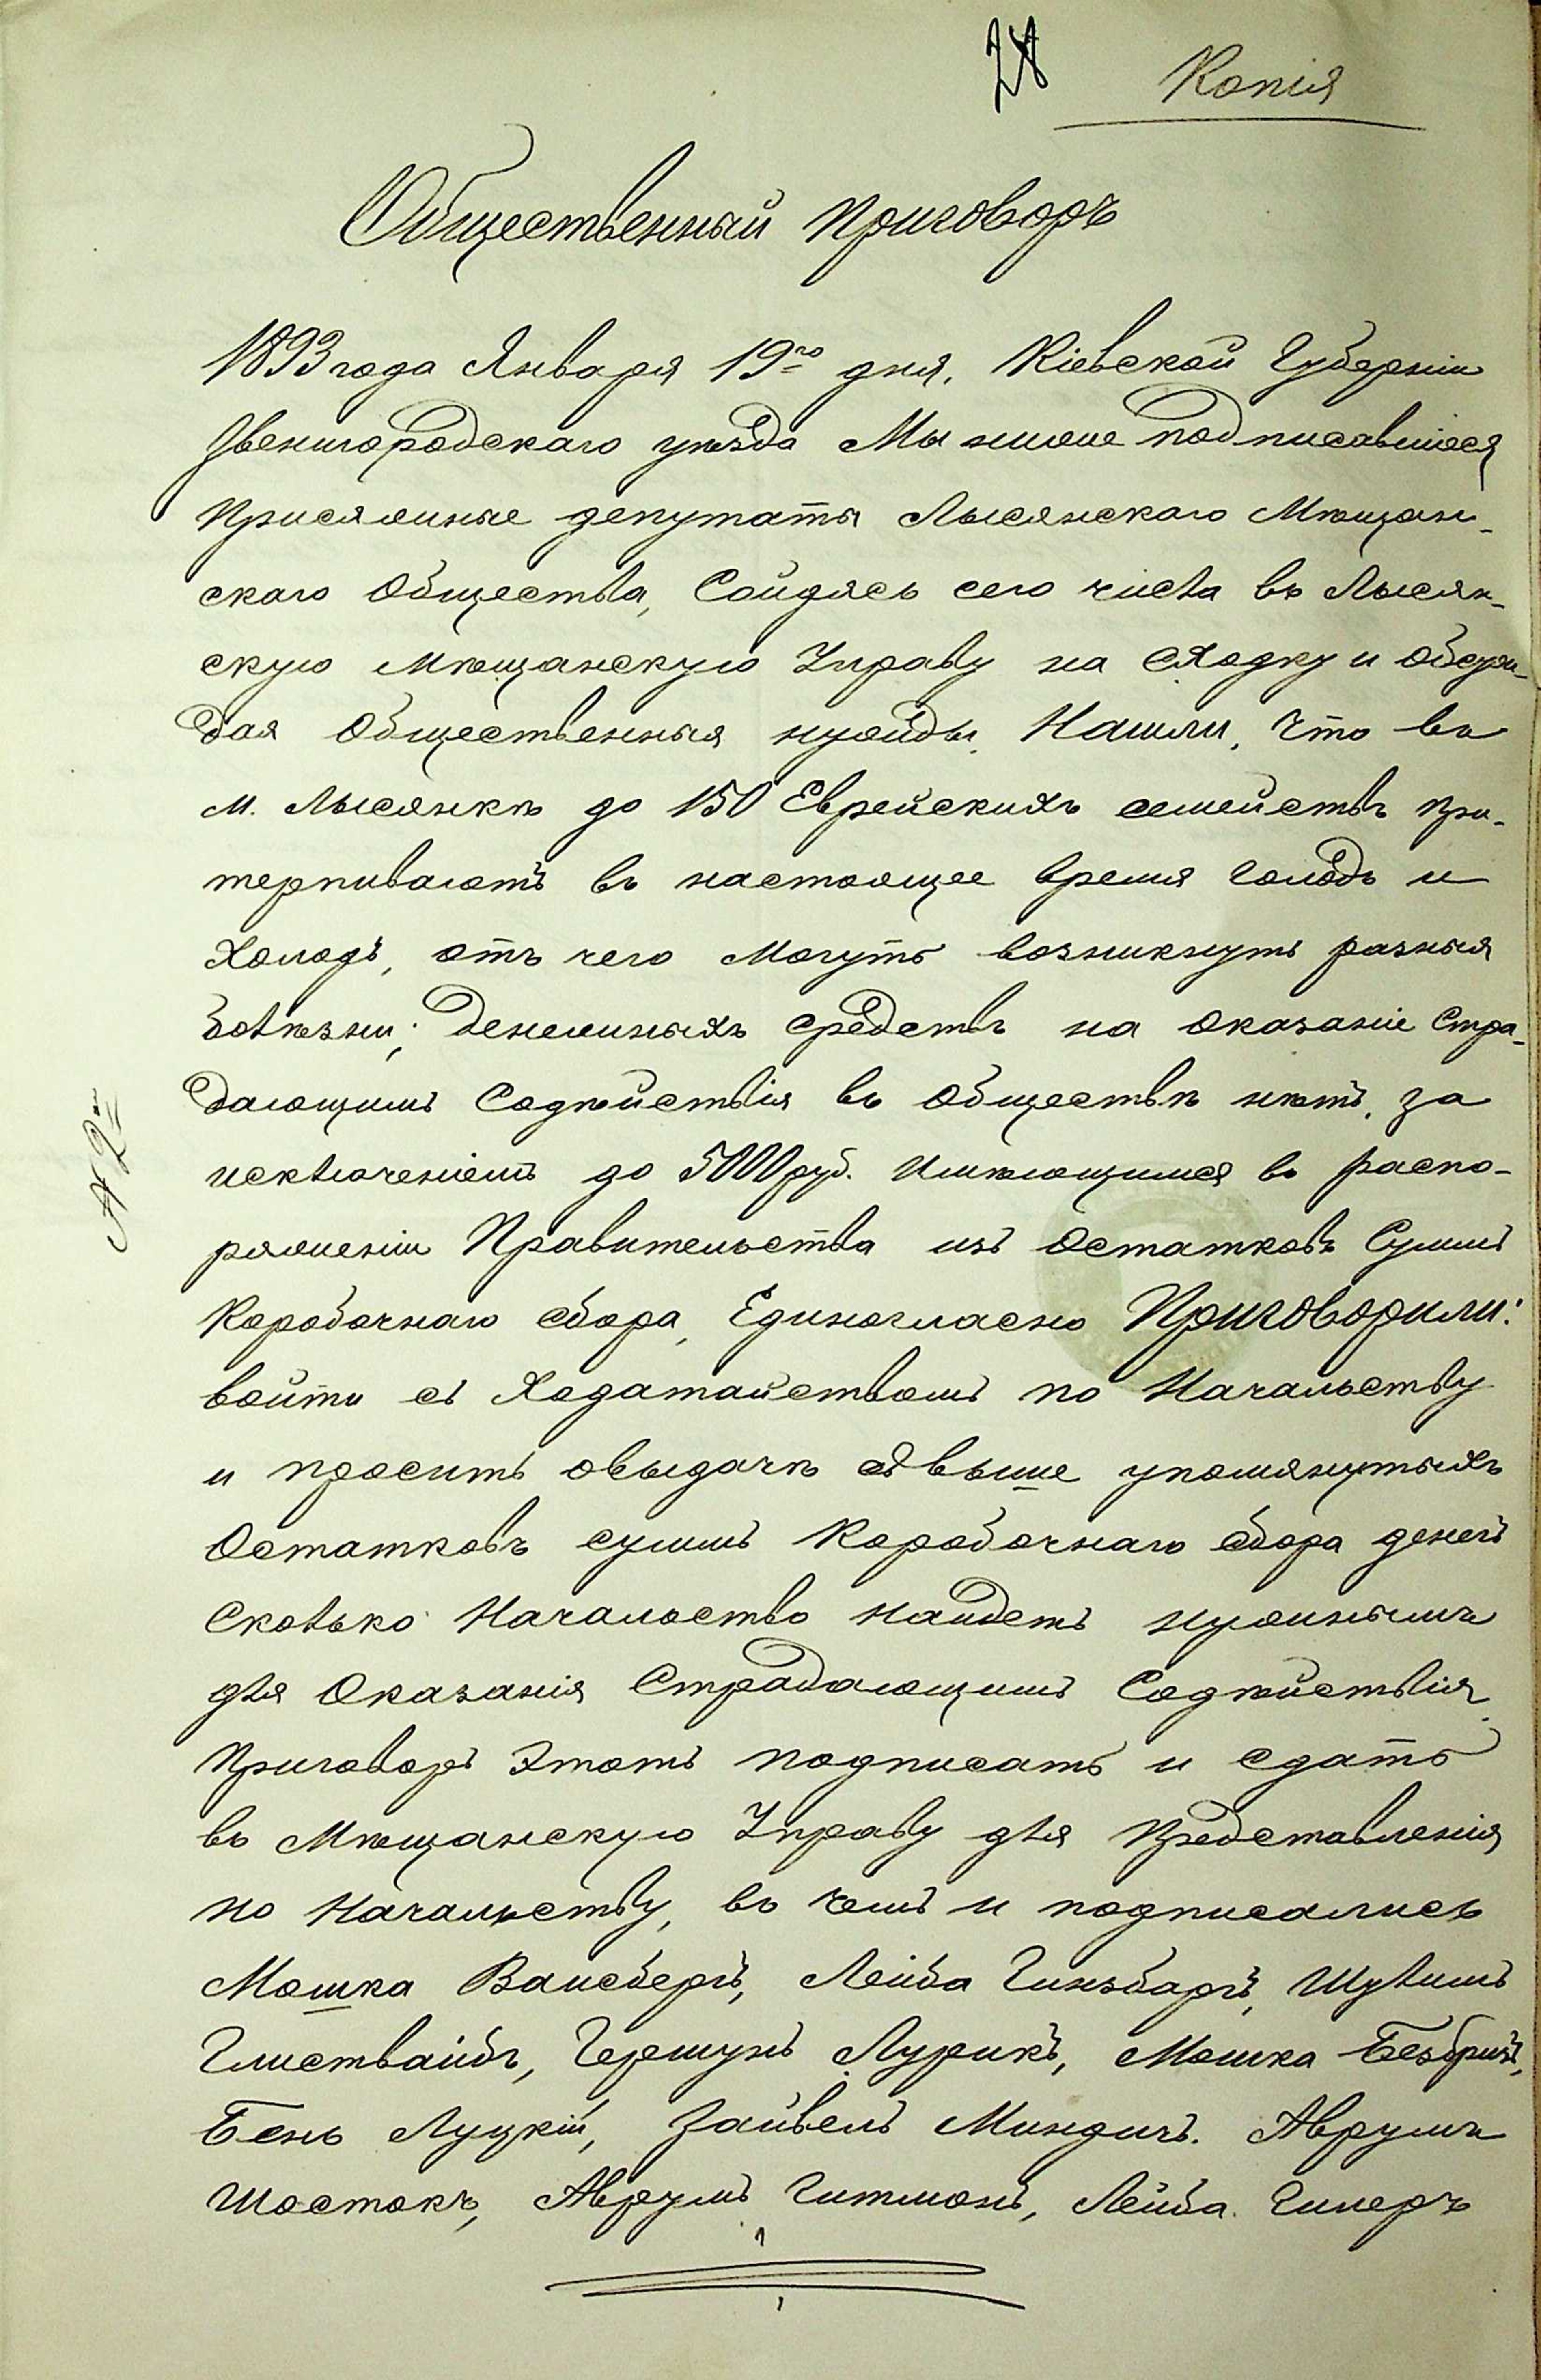 28 Копія
Общественный приговоръ
1893 года Января 19го дня. Кіевской Губерніи
Звенигородскаго уѣзда Мы ниже подписавшіеся
Присяжные депутаты Лысянскаго Мѣщан-
скаго Общества, Сойдясь сего числа въ Лысян-
скую Мѣщанскую Управу на сходку и обсуж-
дая Общественныя нужды, Нашли, что въ
м. Лысянкѣ до 150 Еврейскихъ семействъ при-
терпиваютъ въ настоящее время голодъ и
холодъ, отъ чего могутъ возникнуть разныя
болѣзни; денежныхъ средствъ на оказаніе стра-
дающимъ содѣйствія въ обществѣ нѣтъ, за
исключеніемъ до 5000 руб. Имѣющимся въ распо-
ряженіи Правительства изъ Остатковъ Суммъ
Коробочнаго сбора, Единогласно Приговорили:
войти съ ходатайствомъ по Начальству
и просить овыдачѣ съ выше упомянутыхъ
Остатковъ суммъ Коробочнаго сбора денегъ
сколько Начальство найдетъ нужнымъ
для Оказанія Страдающимъ Содѣйствія.
Приговоръ Этотъ подписать и сдать
въ Мѣщанскую Управу для представленія
по Начальству, въ чемъ и подписались
Мошка Вансбергъ, Лейба Гинзбаргъ, Шулимъ
Глиствайбъ, Гершунъ Лурикъ, Мошка Безбризъ,
Бень Луцкій, Зайвель Миндичъ. Аврумъ
Шостакъ, Аврумъ Гитманъ, Лейба Гилеръ